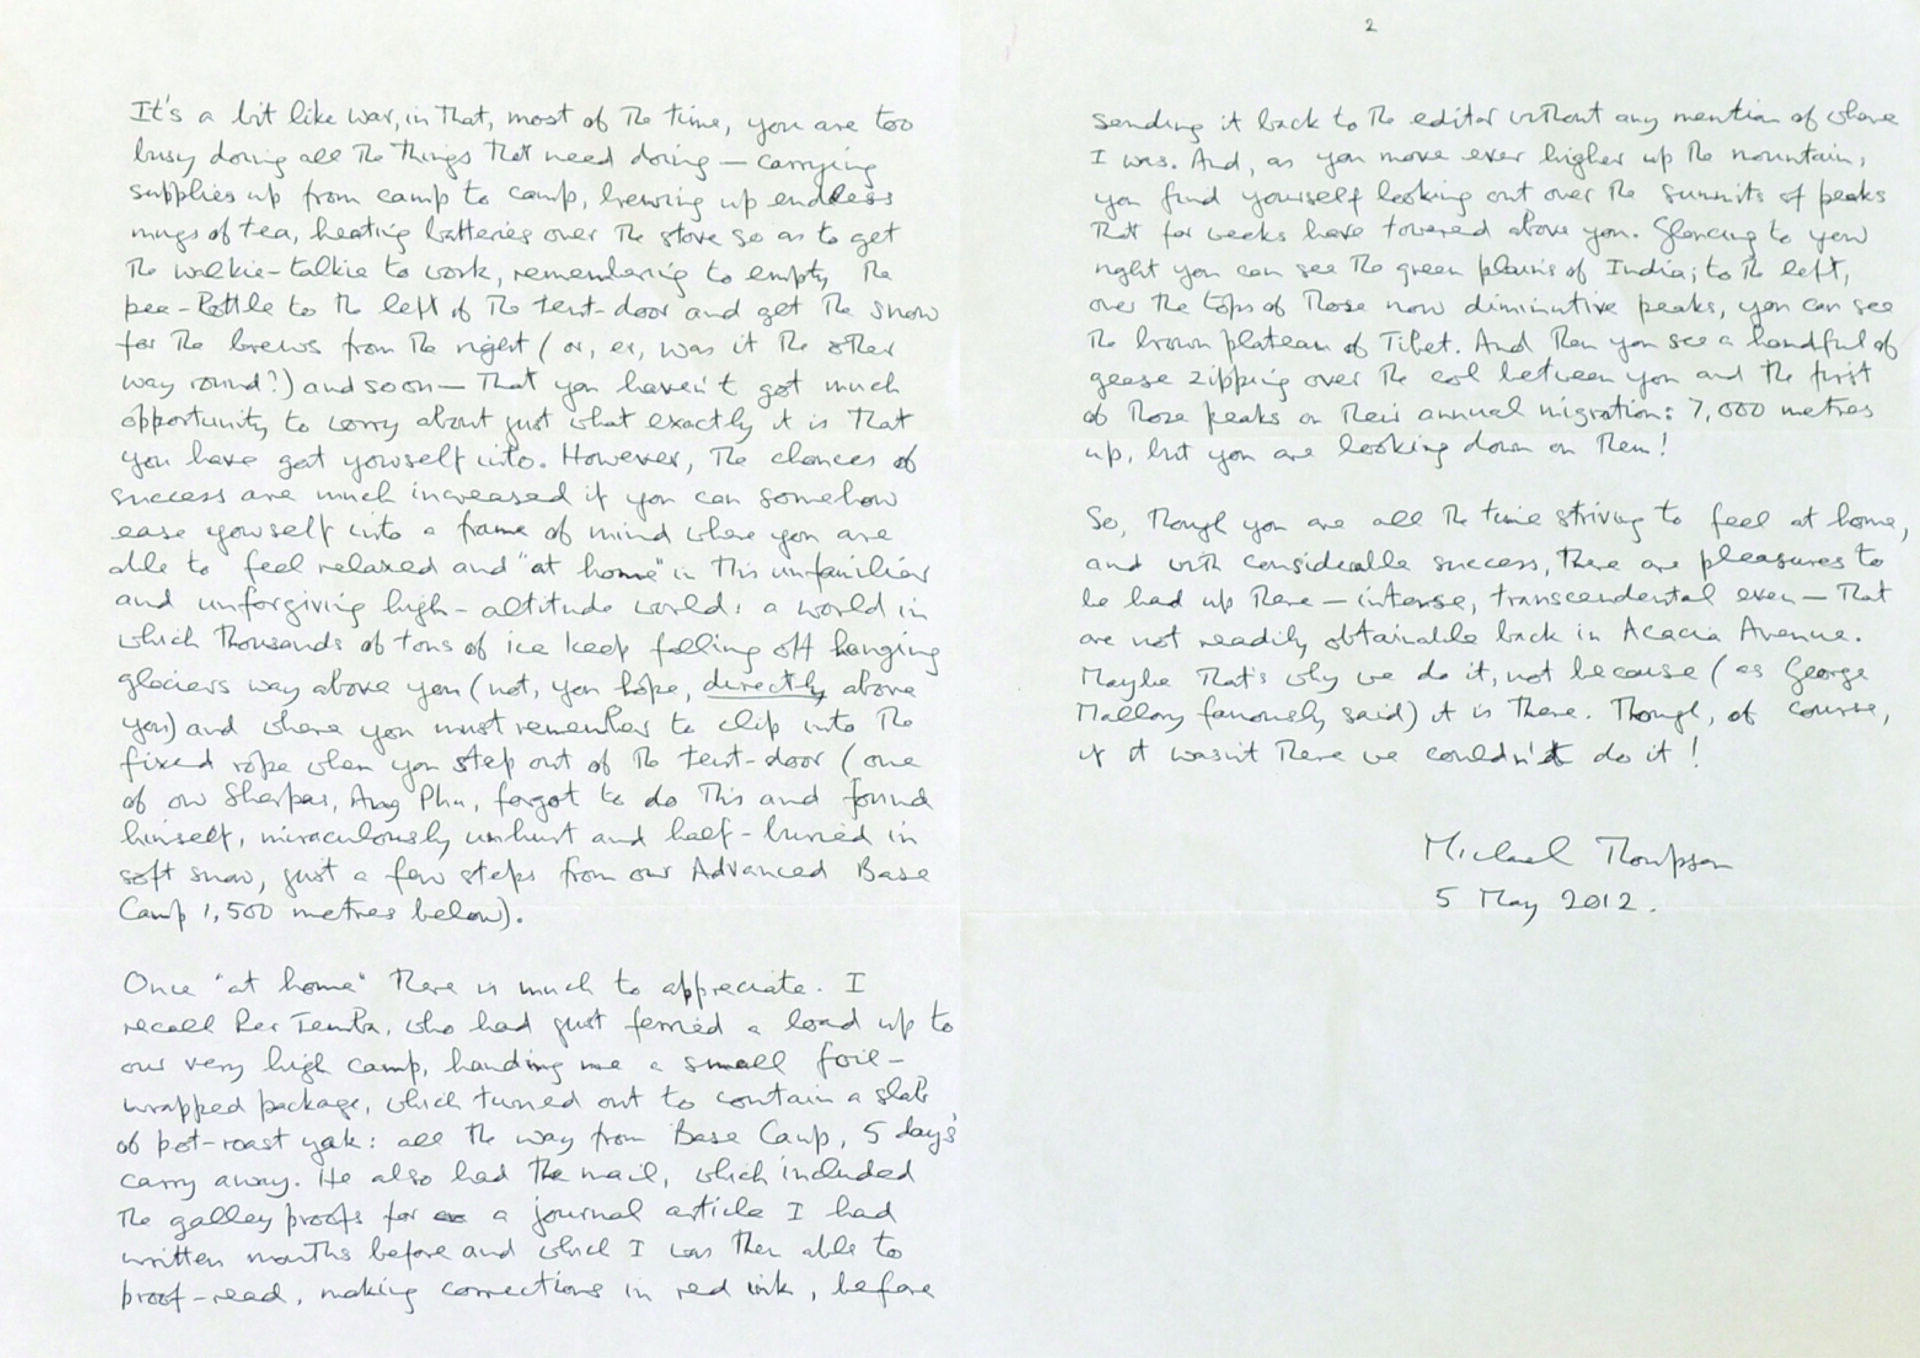 It's a bit like war, in that, most of the time, you are too
busy doing all the things that need doing — carrying
supplies up from camp to camp, brewing up endless
mugs of tea, heating batteries over the stove so as to get
the walkie-talkie to work, remembering to empty the
pee-bottle to the left of the tent-door and get the snow
for the brews from the right (or, er, was it the other
way round?) and so on — that you haven't got much
opportunity to worry about just what exactly it is that
you have got yourself into. However, the chances of
success are much increased if you can somehow
ease yourself into a frame of mind where you are
able to feel relaxed and "at home" in this unfamiliar
and unforgiving high-altitude world: a world in
which thousands of tons of ice keep falling off hanging
glaciers way above you (not, you hope, directly above
you) and where you must remember to clip into the
fixed rope when you step out of the tent-door (one
of our Sherpas, Ang Phu, forgot to do this and found
himself, miraculously unhurt and half-buried in
soft snow, just a few steps from our Advanced Base
Camp 1,500 metres below).
Once "at home" there is much to appreciate. I
recall Per Temba, who had just ferried a load up to
our very high camp, handing me a small foil-
wrapped package, which turned out to contain a slab
of pot-roast yak: all the way from Base Camp, 5 days'
carry away. He also had the mail, which included
the galley proofs for a journal article I had
written months before and which I was then able to
proof-read, making corrections in red ink, before
2
sending it back to the editor without any mention of where
I was. And, as you move ever higher up the mountain,
you find yourself looking out over the summits of peaks
that for weeks have towered above you. Glancing to your
right you can see the green plains of India; to the left,
over the tops of those now diminutive peaks, you can see
the brown plateau of Tibet. And then you see a handful of
geese zipping over the col between you and the first
of those peaks on their annual migration: 7,000 metres
up, but you are looking down on them!
So, though you are all the time striving to feel at home,
and with considerable success, there are pleasures to
be had up there — intense, transcendental even — that
are not readily obtainable back in Acacia Avenue.
Maybe that's why we do it, not because (as George
Mallory famously said) it is there. Though, of course,
if it wasn't there we couldn't do it!
Michael Thompson
5 May 2012.